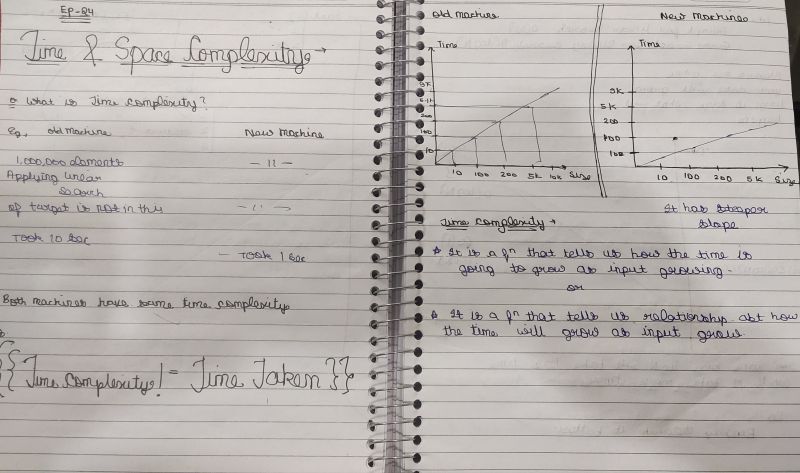 EP-24
Time & Space Complexity →
Q What is Time complexity?
Eg, old machine New Machine
1,000,000 elements — 11 —
Applying linear
search
if target is not in this — 11 —
Took 10 sec
— Took 1 sec
Both machines have same time complexity
{{Time complexity! = Time Taken}}
Old machine
Time
9K
200
100
10
10 100 200 5K 10K Size
New Machines
Time
9K
5K
200
100
10 100 200 5K Size
It has steaper
slope
Time complexity →
It is a fn that tells us how the time is
going to grow as input growing.
or
It is a fn that tells us relationship abt how
the time will grow as input grows.